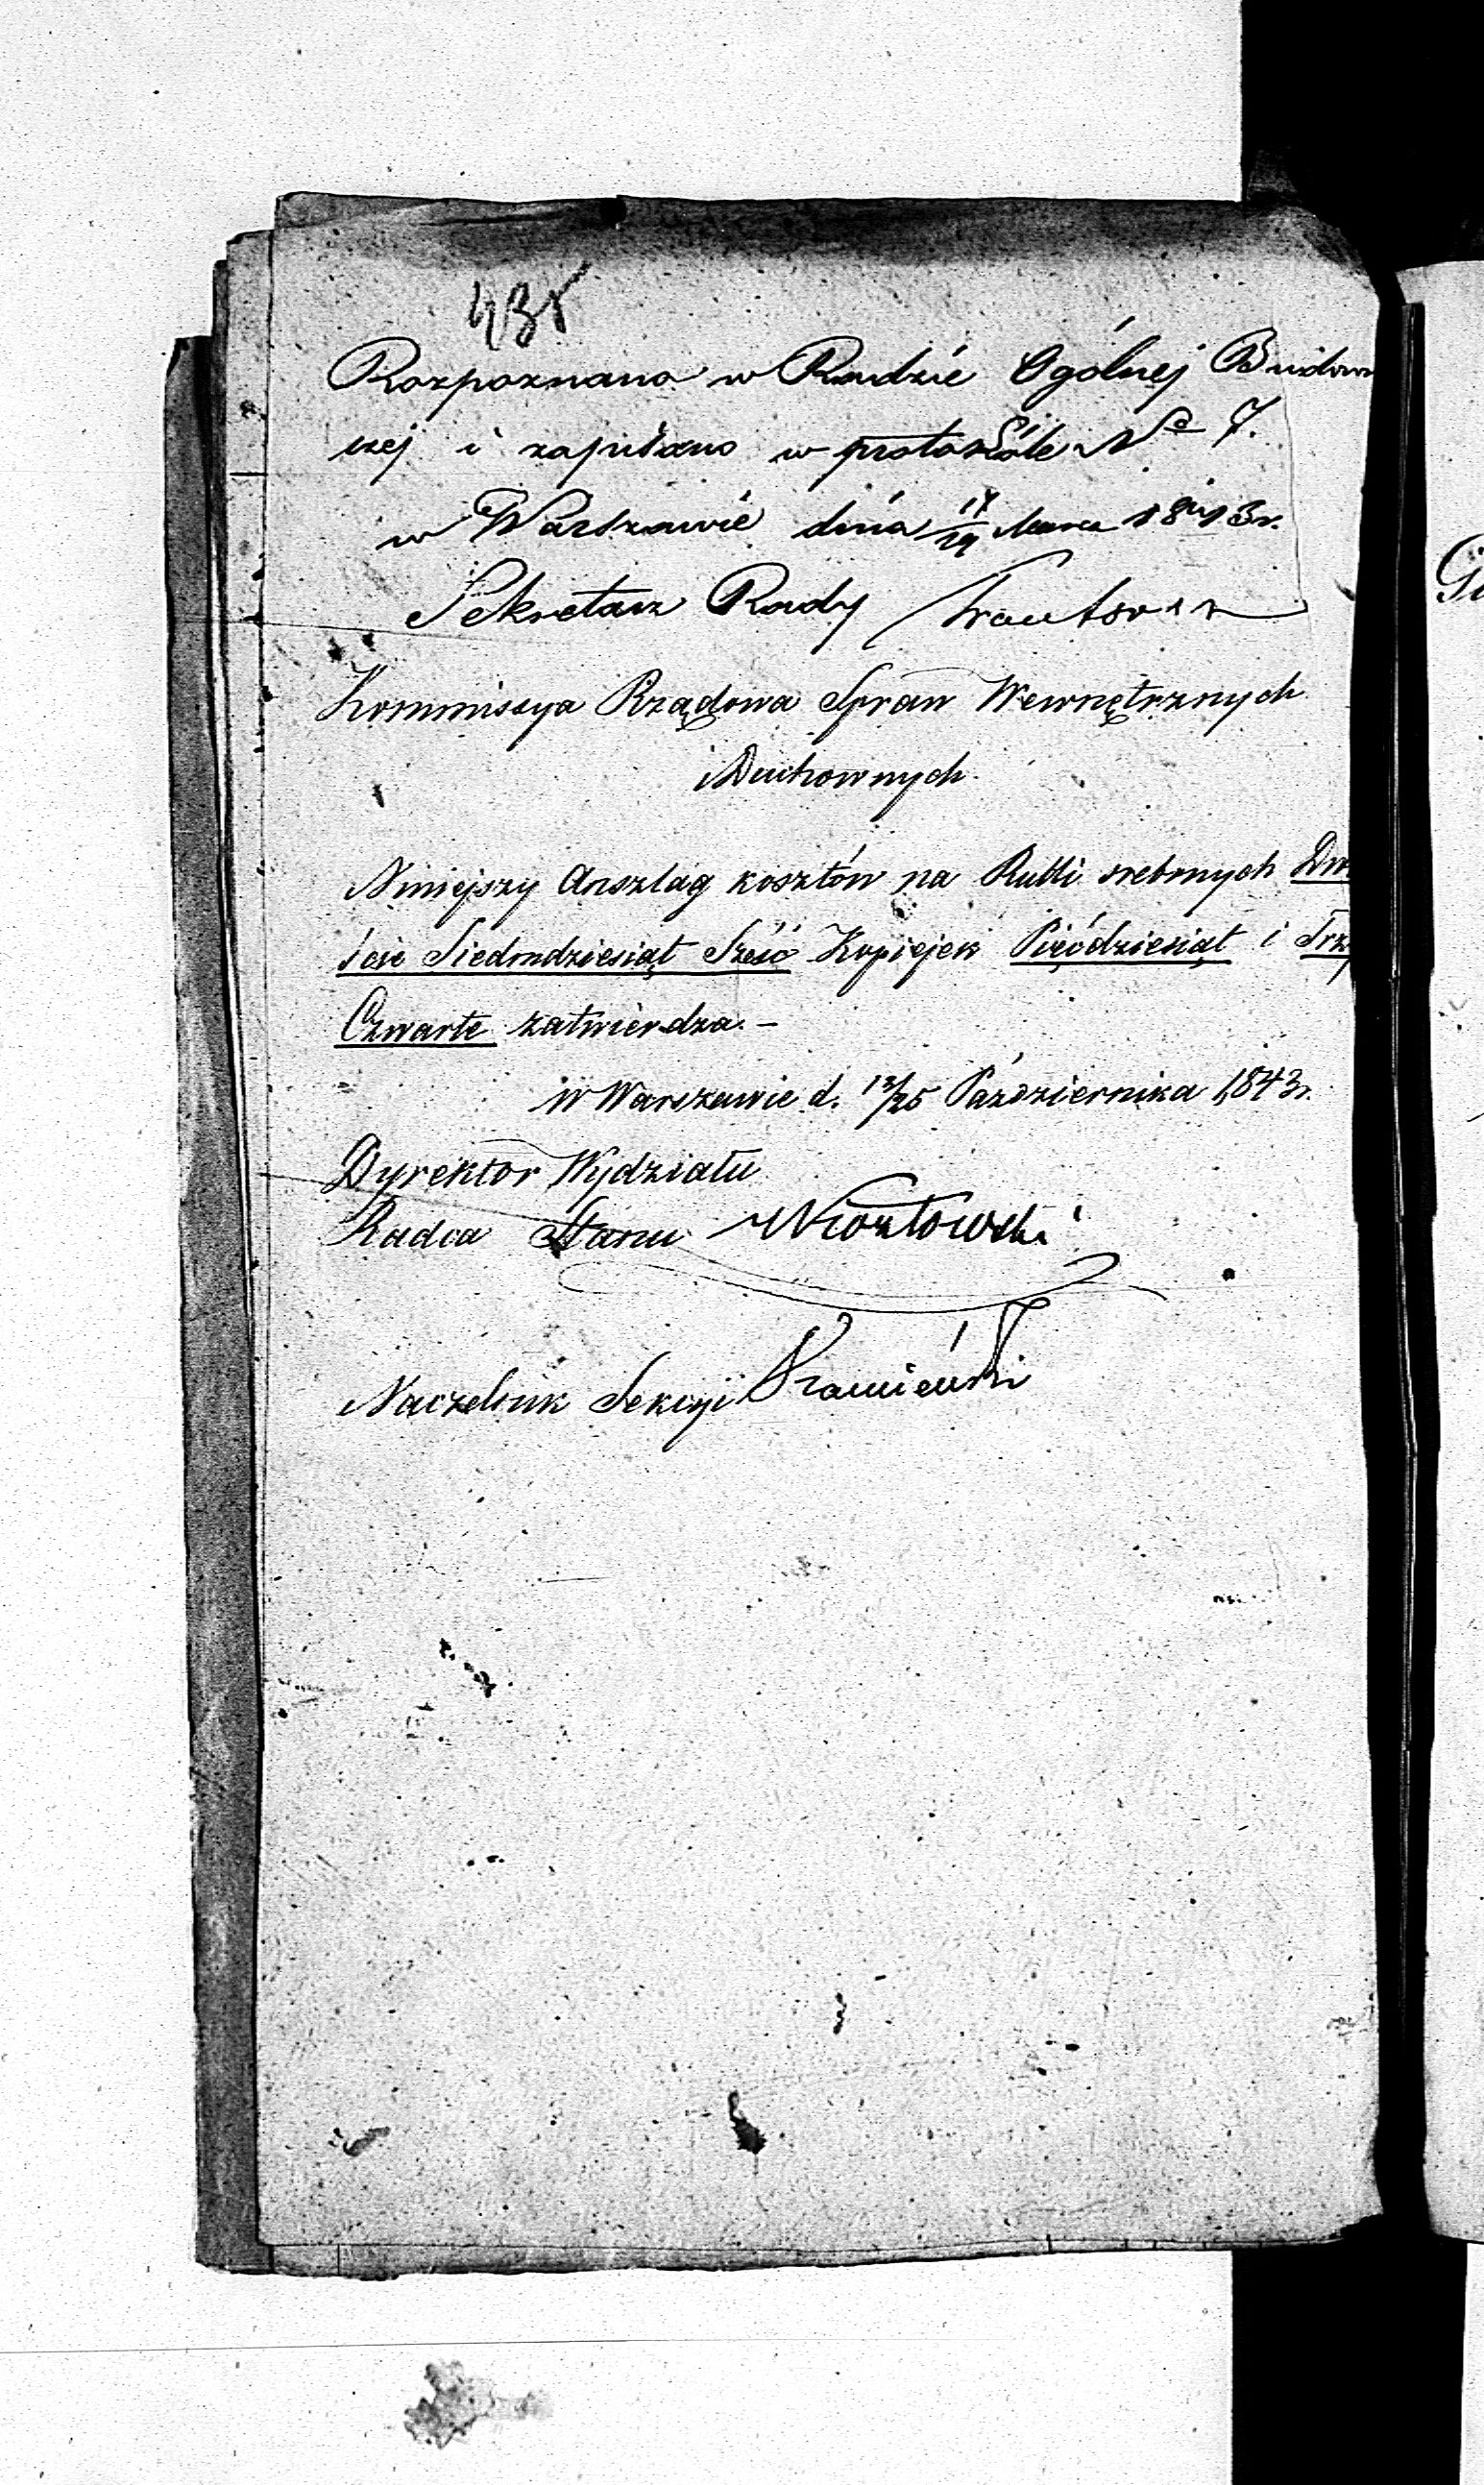 Rozpoznano w Radzie Ogólnej Budow
czej i zapisano w protokóle No 7.
w Warszawie dnia 17/29 Marca 1843 r.
Sekretarz Rady
Kommissya Rządowa Spraw Wewnętrznych
i Duchownych.
Niniejszy Anszlag kosztów na Rubli srebrnych Dw
ście Siedmdziesiąt Sześć Kopiejek Pięćdziesiąt i Trzy
Czwarte zatwierdza. –
w Warszawie d. 13/25 Października 1843 r.
Dyrektor Wydziału
Radca Stanu
Naczelnik Sekcyi Kamieński